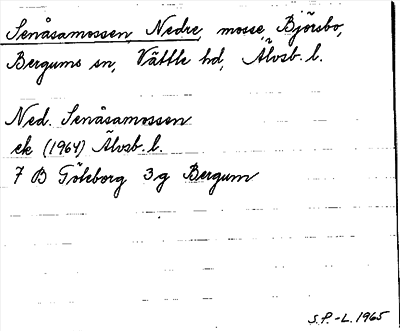 Senåsamossen, Nedre, mosse, Björsbo,
Bergums sn, Vättle hd, Älvsb. l.
Ned. Senåsamossen
ek (1964) Älvsb. l.
7 B Göteborg 3 g Bergum
S.P.-L. 1965